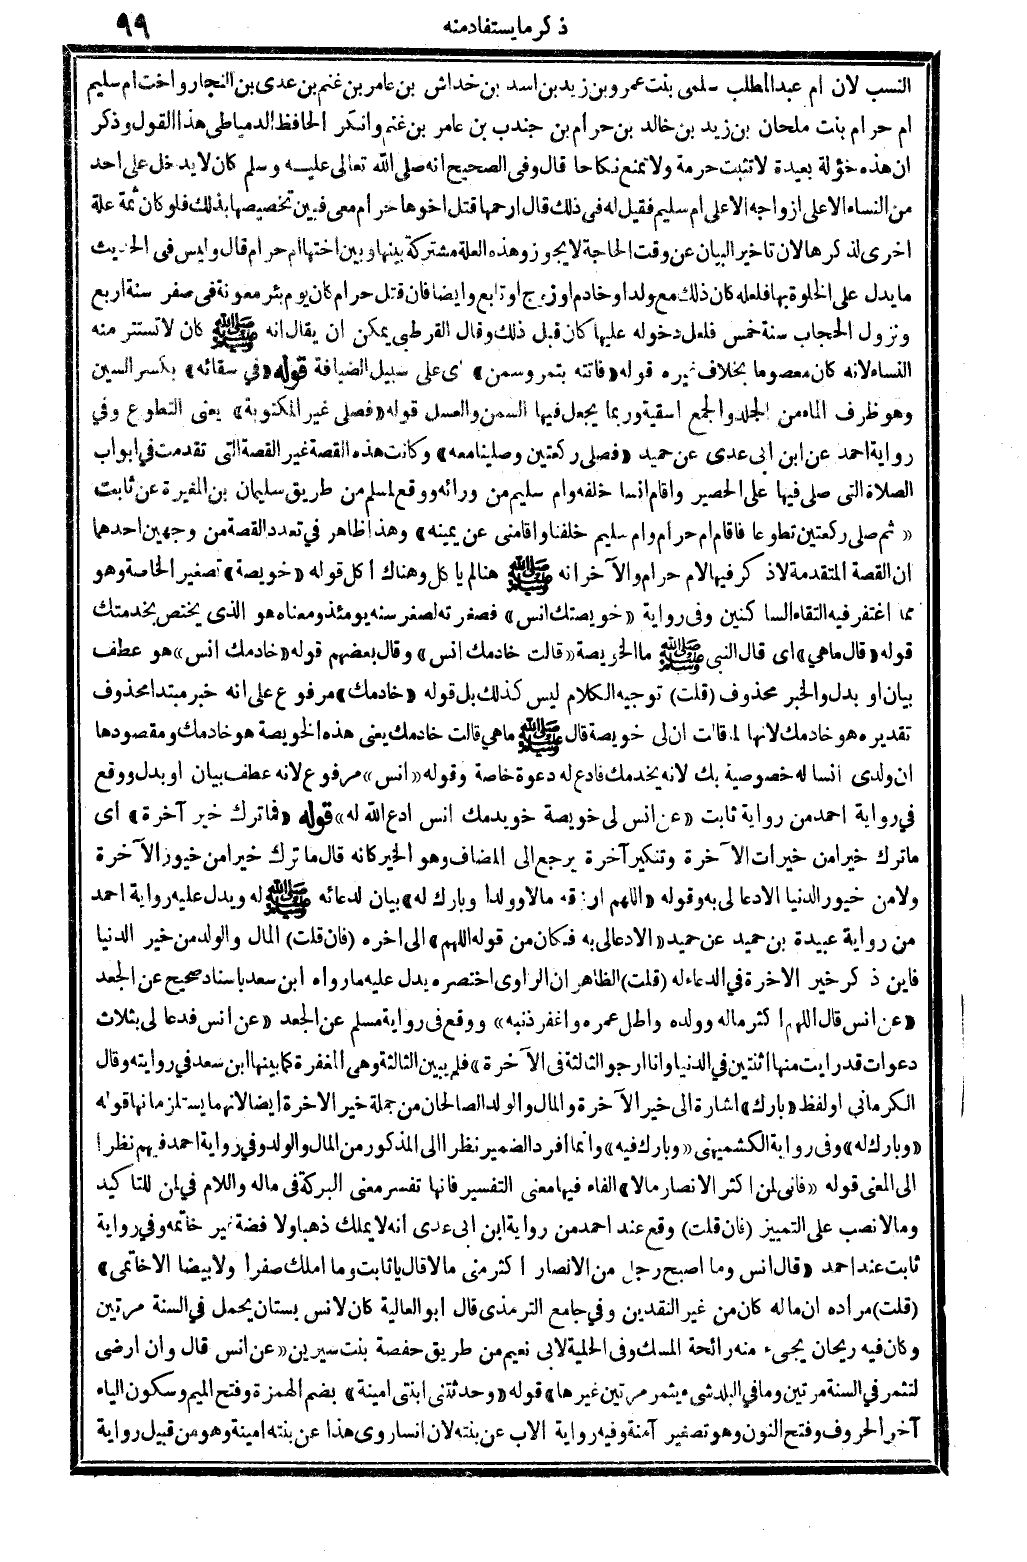 ذكر مايستفادمنه ٩٩
النسب لان ام عبدالمطلب سلمى بنت عمرو بن زيد بن اسد بن خداش بن عامر بن غنم بن عدى بن النجار واخت ام سليم
ام حرام بنت ملحان بن زيد بن خالد بن حرام بن جندب بن عامر بن غنم وانكر الحافظ الدمياطى هذا القول وذكر
ان هذه خؤلة بعيدة لا تثبت حرمة ولا تمنع نكاحا قال وفى الصحيح انه صلى الله تعالى عليه وسلم كان لا يدخل على احد
من النساء الا على ازواجه الا على ام سليم فقيل له فى ذلك قال ارحمها قتل اخوها حرام معى فبين تخصيصها بذلك فلو كان ثمة علة
اخرى لذكرها لان تاخير البيان عن وقت الحاجة لا يجوز وهذه العلة مشتركة بينها وبين اختها ام حرام قال وليس فى الحديث
ما يدل على الخلوة بها فلعله كان ذلك مع ولد او خادم او زوج او تابع وايضا فان قتل حرام كان يوم بئر معونة فى صفر سنة اربع
ونزول الحجاب سنة خمس فلعل دخوله عليها كان قبل ذلك وقال القرطبى يمكن ان يقال انه ﷺ كان لا تستتر منه
النساء لانه كان معصوما بخلاف غيره قوله «فاتته بتمر وسمن» اى على سبيل الضيافة قوله «في سقائه» بكسر السين
وهو ظرف الماء من الجلد والجمع اسقية وربما يجعل فيها السمن والعسل قوله «فصلى غير المكتوبة» يعنى التطوع وفي
رواية احمد عن ابن ابى عدى عن حميد «فصلى ركعتين وصلينا معه» وكانت هذه القصة غير القصة التى تقدمت في ابواب
الصلاة التى صلى فيها على الحصير واقام انسا خلفه وام سليم من ورائه ووقع لمسلم من طريق سليمان بن المغيرة عن ثابت
«ثم صلى ركعتين تطوعا فاقام ام حرام وام سليم خلفنا واقامنى عن يمينه» وهذا ظاهر في تعدد القصة من وجهين احدهما
ان القصة المتقدمة لا ذكر فيها لام حرام والآخر انه ﷺ هنا لم ياكل وهناك اكل قوله «خويصة» تصغير الخاصة وهو
مما اغتفر فيه التقاء الساكنين وفى رواية «خويصتك انس» فصغرته لصغر سنه يومئذ ومعناه هو الذى يختص بخدمتك
قوله «قال ماهي» اى قال النبى ﷺ ما الخويصة «قالت خادمك انس» وقال بعضهم قوله «خادمك انس» هو عطف
بيان او بدل والخبر محذوف (قلت) توجيه الكلام ليس كذلك بل قوله «خادمك» مرفوع على انه خبر مبتدا محذوف
تقديره هو خادمك لانها لما قالت ان لى خويصة قال ﷺ ماهي قالت خادمك يعنى هذه الخويصة هو خادمك ومقصودها
ان ولدى انسا له خصوصية بك لانه يخدمك فادع له دعوة خاصة وقوله «انس» مرفوع لانه عطف بيان او بدل ووقع
في رواية احمد من رواية ثابت «عن انس لى خويصة خويدمك انس ادع الله له» قوله «فما ترك خير آخرة» اى
ما ترك خيرا من خيرات الآخرة وتنكير آخرة يرجع الى المضاف وهو الخير كانه قال ما ترك خيرا من خيور الآخرة
ولا من خيور الدنيا الا دعا لى به وقوله «اللهم ارزقه مالا وولدا وبارك له» بيان لدعائه ﷺ له ويدل عليه رواية احمد
من رواية عبيدة بن حميد عن حميد «الا دعا لى به فكان من قوله اللهم» الى اخره (فان قلت) المال والولد من خير الدنيا
فاين ذكر خير الاخرة في الدعاء له (قلت) الظاهر ان الراوى اختصره يدل عليه ما رواه ابن سعد باسناد صحيح عن الجعد
«عن انس قال اللهم اكثر ماله وولده واطل عمره واغفر ذنبه» ووقع فى رواية مسلم عن الجعد «عن انس فدعا لى بثلاث
دعوات قد رايت منها اثنتين في الدنيا وانا ارجو الثالثة فى الآخرة» فلم يبين الثالثة وهى المغفرة كما بينها ابن سعد في روايته وقال
الكرمانى او لفظ «بارك» اشارة الى خير الآخرة والمال والولد الصالحان من جملة خير الاخرة ايضا لانهما يستلزمانها قوله
«وبارك له» وفى رواية الكشميهنى «وبارك فيه» وانما افرد الضمير نظرا الى المذكور من المال والولد وفي رواية احمد فيهم نظرا
الى المعنى قوله «فانى لمن اكثر الانصار مالا» الفاء فيها معنى التفسير فانها تفسر معنى البركة فى ماله واللام في لمن للتاكيد
ومالا نصب على التمييز (فان قلت) وقع عند احمد من رواية ابن ابى عدى انه لا يملك ذهبا ولا فضة غير خاتمه وفي رواية
ثابت عند احمد «قال انس وما اصبح رجل من الانصار اكثر منى مالا قال يا ثابت وما املك صفرا ولا بيضا الا خاتمى»
(قلت) مراده ان ماله كان من غير النقدين وفي جامع الترمذى قال ابو العالية كان لانس بستان يحمل في السنة مرتين
وكان فيه ريحان يجىء منه رائحة المسك وفى الحلية لابى نعيم من طريق حفصة بنت سيرين «عن انس قال وان ارضى
لتثمر في السنة مرتين وما في البلد شىء يثمر مرتين غيرها» قوله «وحدثتنى ابنتى امينة» بضم الهمزة وفتح الميم وسكون الياء
آخر الحروف وفتح النون وهو تصغير آمنة وفيه رواية الاب عن بنته لان انسا روى هذا عن بنته امينة وهو من قبيل رواية